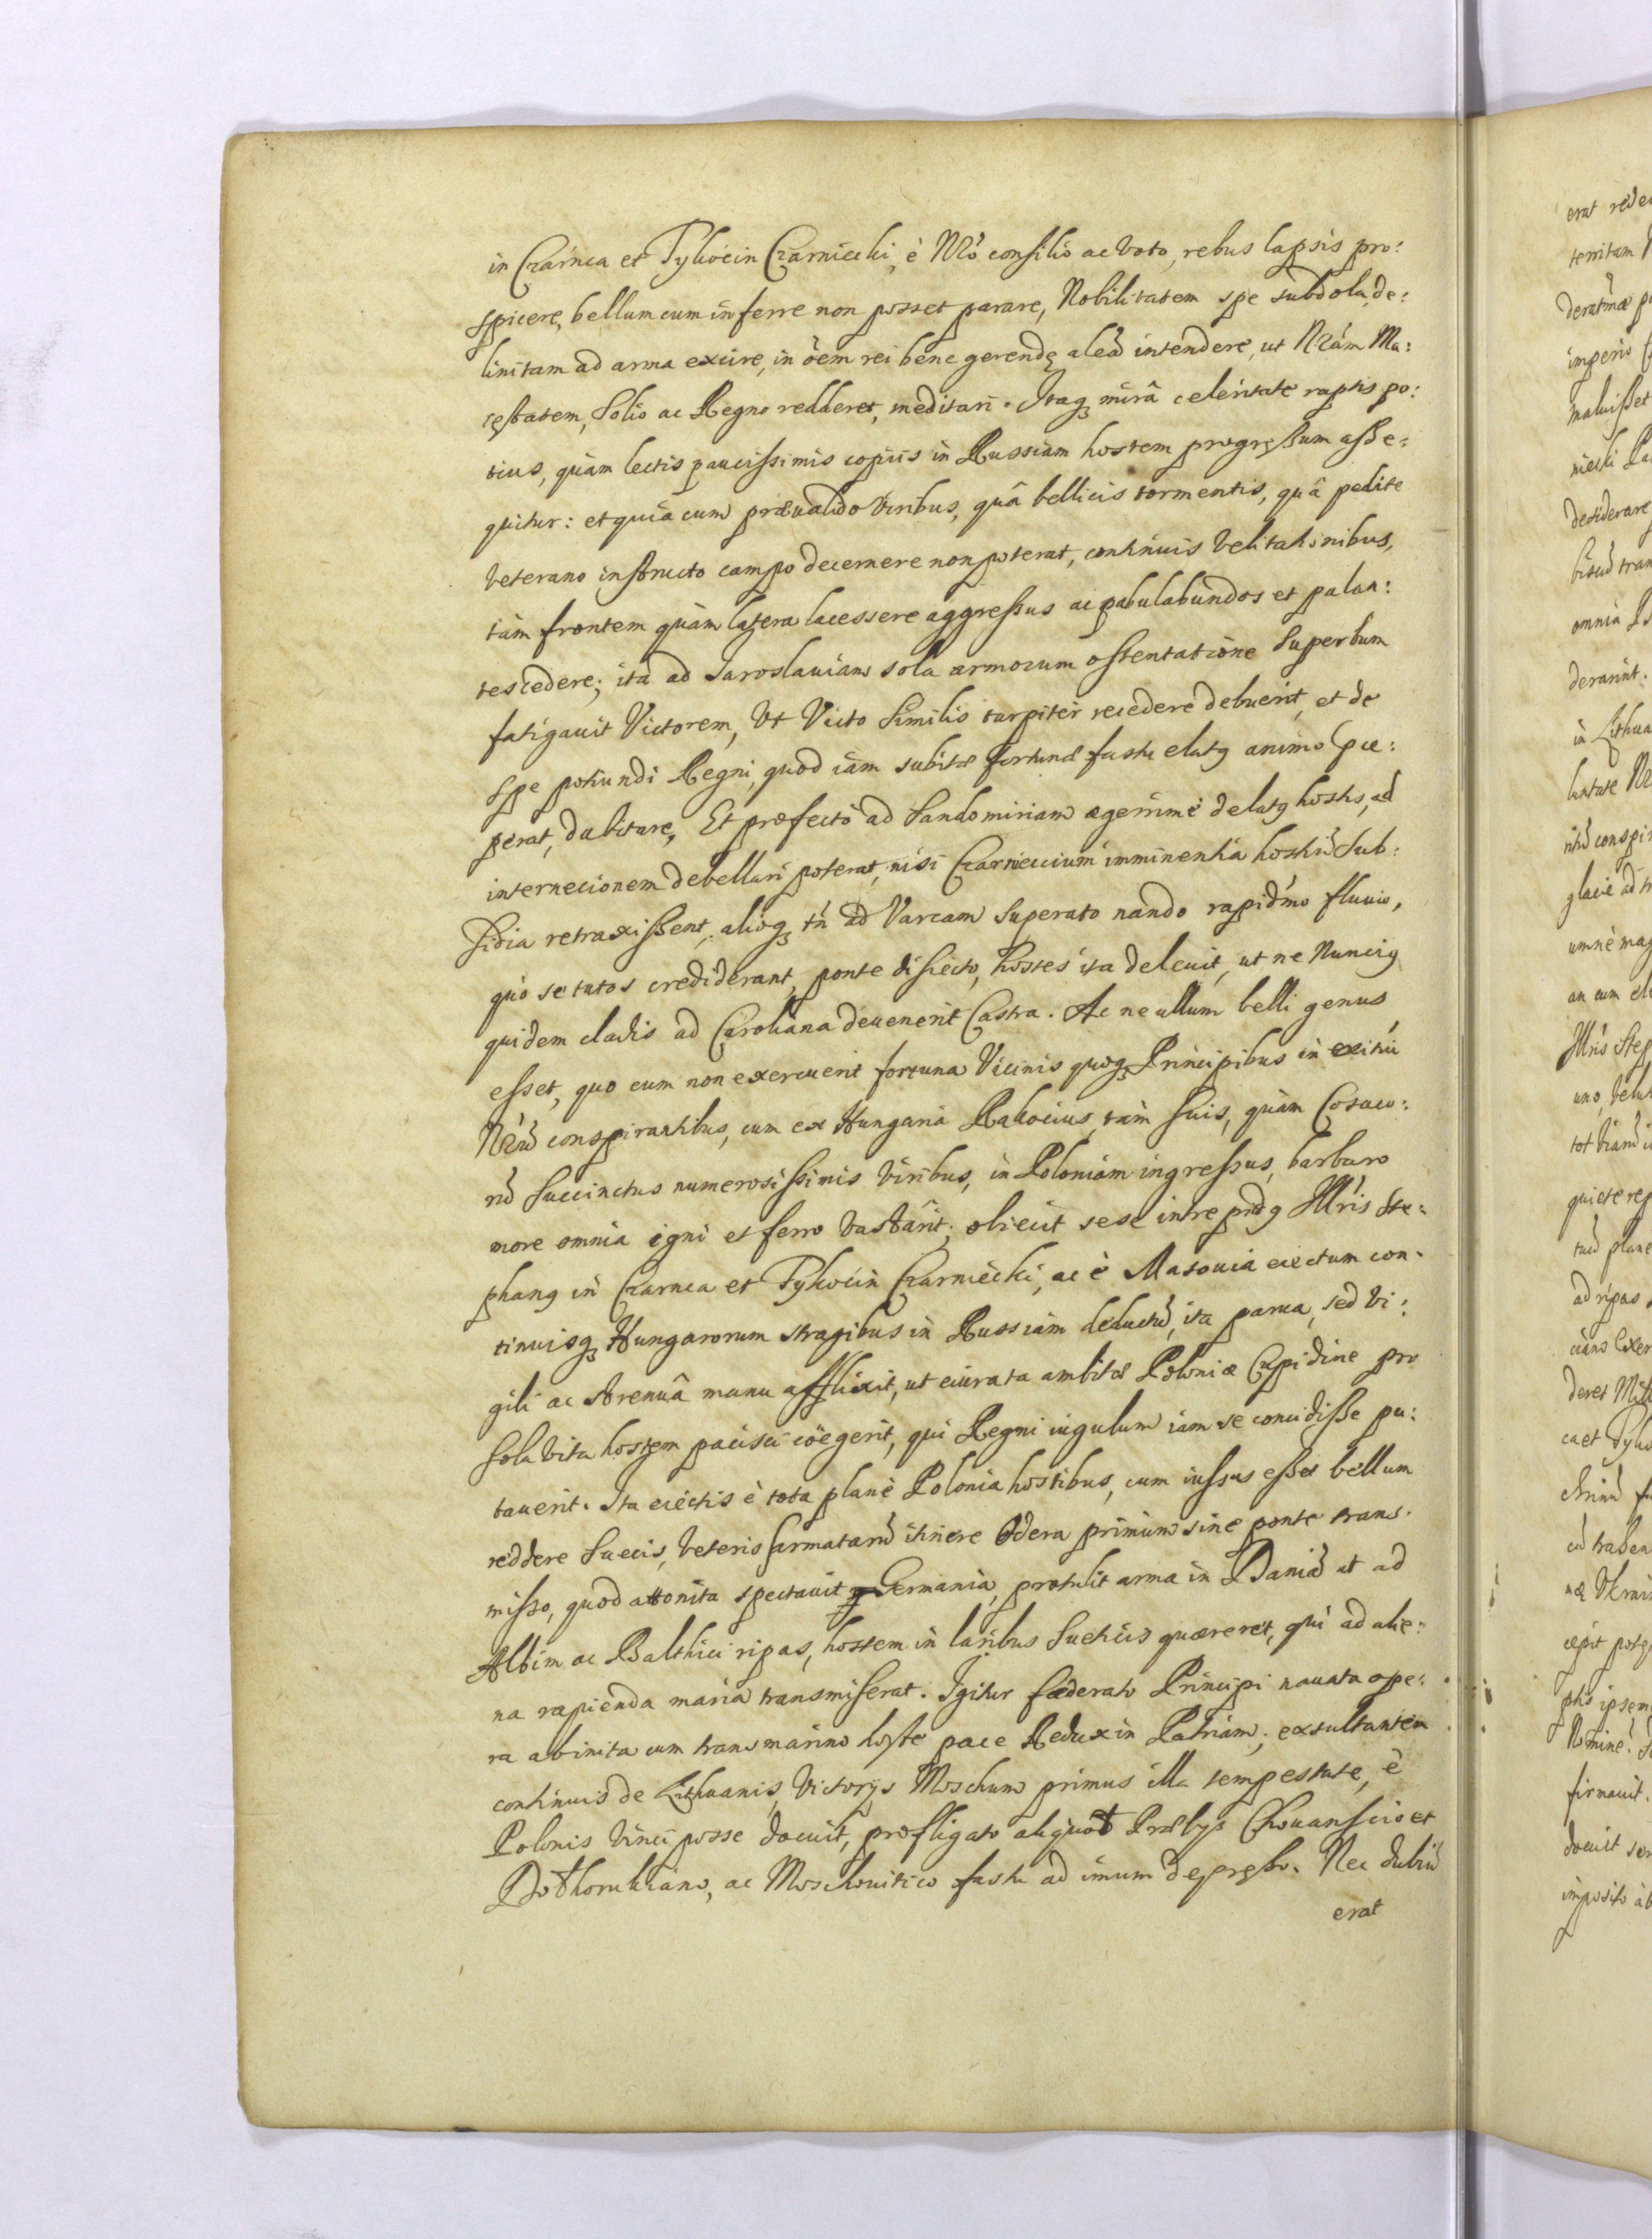 in Czarnca et Tykocin Czarniecki, è Nr̃o consilio ac voto, rebus lapsis pro:
spicere, bellum cum inferre non posset parare, Nobilitatem spe subdola, de:
linitam ad arma exire, in õem rei bene gerendę aleã intendere, ut Nrãm Ma:
iestatem, Solio ac Regno redderet, meditari. Itaq; mirâ celeritate raptis po:
tius, quàm lectis paucissimis copiis in Russiam hostem progressum asse:
quitur: et quia cum præualido viribus, quâ bellicis tormentis, quâ pedite
veterano instructo campo decernere non poterat, continuis velitationibus,
tàm frontem quàm latera lacessere aggressus ac pabulabundos et palan:
tes cedere; ita ad Jaroslauiam sola armorum ostentatione Superbum
fatigauit Victorem, Vt Victo Similis turpiter recedere debuerit, et de
spe potiundi Regni, quod iam subitæ fortunæ fastu elatq animo cæ:
perat, dubitare, Et profectò ad Sandomiriam ægerrimè delatq hostis, ad
internecionem debellari poterat, nisi Czarnieccium imminentia hostiũ Sub:
sidia retraxissent, alioq; tñ ad Varcam Superato nando rapidmo fluuio,
quò se tutos crediderant, ponte disiecto, hostes ita deleuit, ut ne Nunciq
quidem cladis ad Caroliana deuenerit Castra. Ac ne ullum belli genus
esset, quo eum non exercuerit fortuna Vicinis quoq; Principibus in exitiũ
Nrũ conspirantibus, cum ex Hungaria Rakocius, tàm suis, quàm Cosaco:
rũ Succinctus numerosissimis viribus, in Poloniam ingressus, barbaro
more omnia igni et ferro vastârit; obiecit sese in re prdq Mr̃is Ste:
phanq in Czarnca et Tykocin Czarniecki, ac è Masouia eiectum con:
tinuisq; Hungarorum stragibus in Russiam deductũ, ita parua, sed vi:
gili ac strenuâ manu afflixit, ut eiurata ambitæ Poloniæ Cupidine pro
sola vita hostem pacisci coëgerit, qui Regni iugulum iam se concidisse pu:
tauerit. Ita eiectis è tota planè Polonia hostibus, cum iussus esset bellum
reddere Suecis, veteris Sarmatarũ itinere Odera primùm sine ponte trans:
misso, quod attonita spectauit Germania, protulit arma in Daniã ut ad
Albim ac Balthici ripas, hostem in laribus Sueticis quæreret, qui ad alie:
na rapienda maria transmiserat. Igitur fæderato Principi nauata ope:
ra ab inita cum transmarino hoste pace Redux in Patriam, exsultantem
continuis de Lithuanis, Victorijs Moschum primus illa tempestate, è
Polonis vinci posse docuit, profligato aliquot Prælijs Chouanscio et
Dothorukiano, ac Moschouitico fastu ad imum depresso. Nec dubiũ
erat